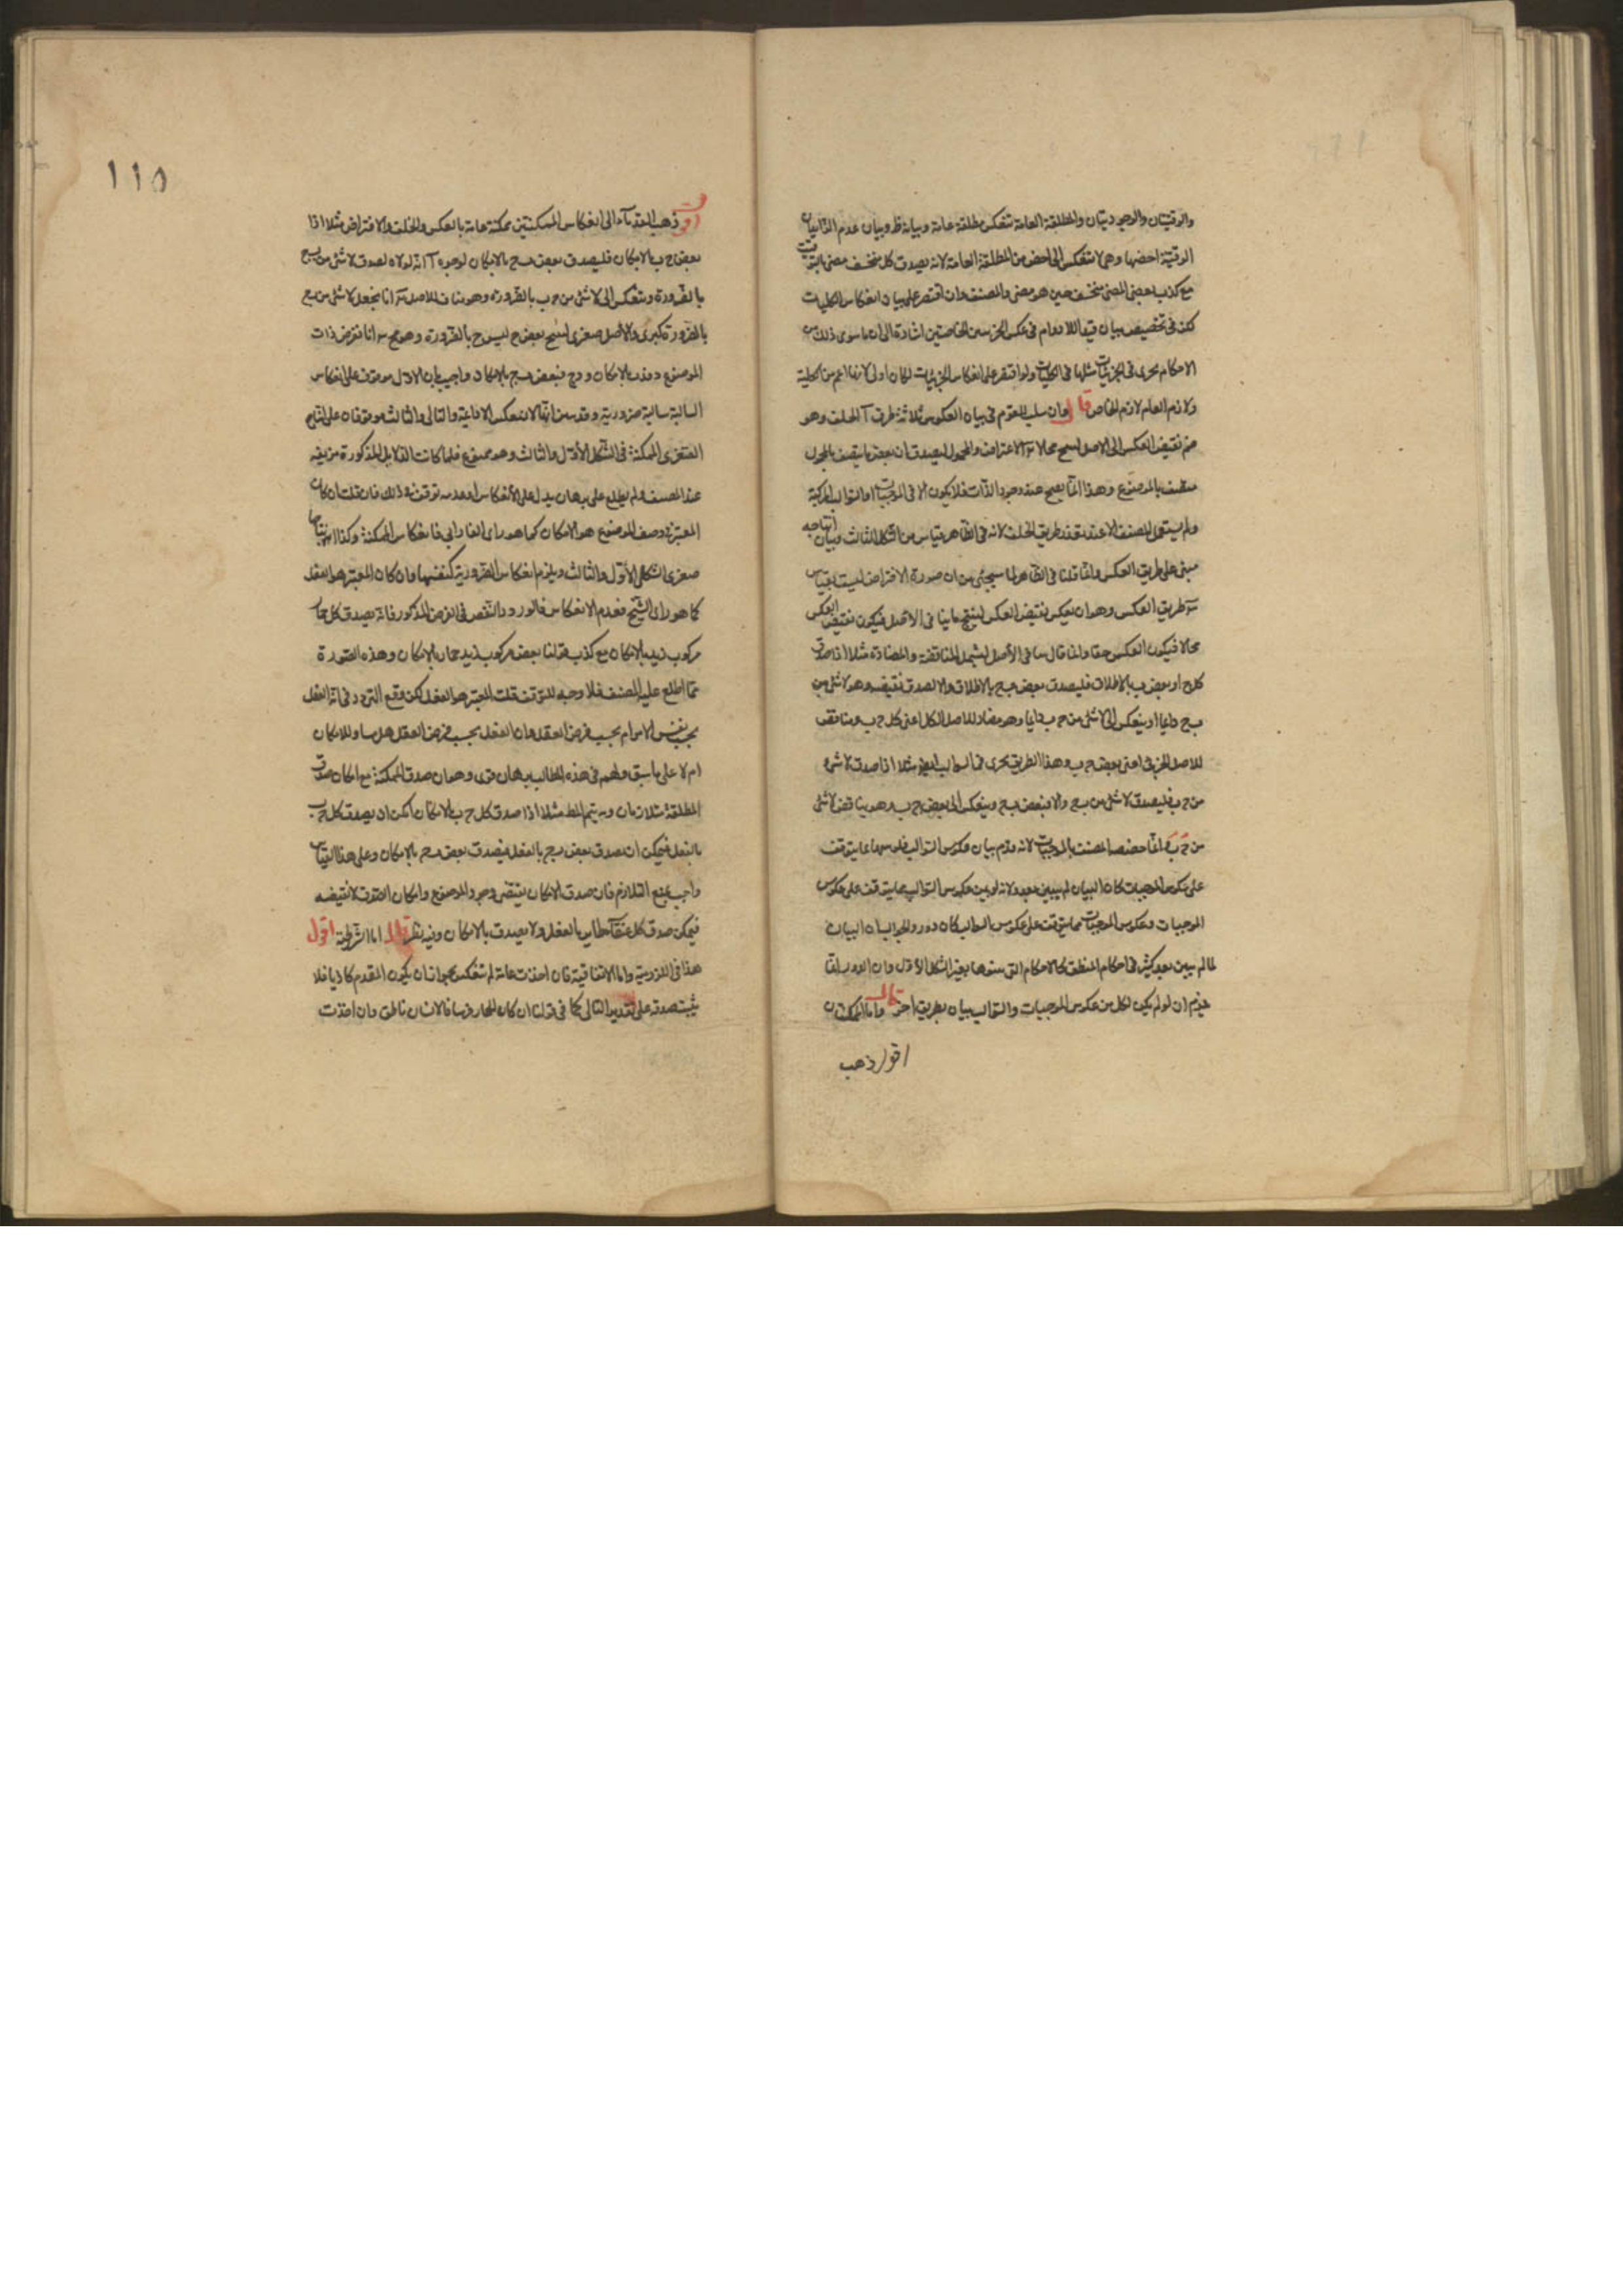 والوقتيتان والوجوديتان والمطلقة العامة تنعكس مطلقة عامة وبيانه ظ وبيان عدم
الوقتية اخصها وهي لا تنعكس الى اخص من المطلقة العامة لانه يصدق كل منخسف مضئ بالتوقيت
مع كذب بعض المضئ منخسف حين هو مضئ والمصنف وان اقتصر على بيان انعكاس الكليات
لكن في تخصيص بيان قيد اللادوام في عكس الجزئيتين الخاصتين اشارة الى ان ما سوى ذلك من
الاحكام يجرى في الجزئيات مثلها في الكليات ولو اقتصر على انعكاس الجزئيات لكان اولى لانها اعم من الكلية
ولازم العام لازم الخاص قال القوم في بيان العكوس ثلاثة طرق آ الخلف وهو
ضم نقيض العكس الى الاصل لينتج محالا الافتراض
متصف بالموضوع وهذا انما يصح عند وجود الذات فلا يكون الا في الموجبات او السوالب المركبة
ولم يستعمل المصنف الا عند تعذر طريق الخلف لانه في الظاهر قياس من الشكل الثالث وبيان انتاجه
مبنى على طريق العكس وانما قلنا في الظاهر لما سيجئ من ان صورة الافتراض ليست بقياس
طريق العكس وهو ان يعكس نقيض العكس لينتج ما ينافى الاصل فيكون نقيض العكس
محالا فيكون العكس حقا وانما قال ينافى الاصل ليشمل المناقضة والمضادة مثلا اذا صدق
كل ج او بعض ب بالاطلاق فليصدق بعض ب ج بالاطلاق والا لصدق نقيضه وهو لا شئ من
ب ج دايما وينعكس الى لا شئ من ج ب دايما وهو مضاد للاصل الكل اعنى كل ج ب ومناقض
للاصل الجزئى اعنى بعض ج ب وهذا الطريق يجرى في السوالب ايضا مثلا اذا صدق لا شئ
من ج ب فليصدق لا شئ من ب ج والا فبعض ب ج وينعكس الى بعض ج ب وهو يناقض لا شئ
من ج ب انما خصصه المصنف بالموجبات لانه قدم بيان عكوس السوالب فلو بينها بما يتوقف
على عكوس الموجبات كان البيان لم يبين بعد ولانه لو بين عكوس السوالب بما يتوقف على عكوس
الموجبات وعكوس الموجبات بما يتوقف على عكوس السوالب كان دورا والجواب ان البيان
لما لم يبين بعد كثير في احكام المنطق كالاحكام التى بينوها بغير الشكل الاول وان الدور انما
يلزم ان لو لم يكن لكل من عكوس الموجبات والسوالب بيان بطريق آخر قال واما الممكنتان
اقول ذهب
١١٥
اقول ذهب القدماء الى انعكاس الممكنتين ممكنة عامة بالعكس والخلف والافتراض مثلا اذا
بعض ج ب بالامكان فليصدق بعض ب ج بالامكان لوجوه آ انه لولاه لصدق لا شئ من ب ج
بالضرورة وينعكس الى لا شئ من ج ب بالضرورة وهو مناف للاصل انا نجعل لا شئ من ب ج
بالضرورة كبرى والاصل صغرى لينتج بعض ج ليس ج بالضرورة وهو مح انا نفرض ذات
الموضوع د فدب بالامكان ودج فبعض ب ج بالامكان واجيب بان الاول موقوف على انعكاس
السالبة سالبة ضرورية وقد انها لا تنعكس الا دايمة والثانى والثالث موقوفان على انتاج
الصغرى الممكنة في الشكل الاول والثالث وهو ممنوع فلما كانت الدلايل المذكورة مزيفة
عند المصنف ولم يطلع على برهان يدل على الانعكاس او عدمه توقف في ذلك فان قلت ان كان
المعتبر في وصف الموضوع هو الامكان كما هو راى الفارابى فانعكاس الممكنة وكذا انتاجها
صغرى الشكل الاول والثالث ويلزم انعكاس الضرورية كنفسها وان كان المعتبر هو الفعل
كما هو راى الشيخ فعدم الانعكاس ظ لورود النقض في الفرض المذكور فانه يصدق كل حمار
مركوب زيد بالامكان مع كذب قولنا بعض مركوب زيد حمار بالامكان وهذه الصورة
مما اطلع عليه المصنف فلا وجه للتوقف قلت المعتبر هو الفعل لكن وقع التردد في انه الفعل
بحسب نفس الامر ام بحسب فرض العقل وان الفعل بحسب فرض العقل هل يساو للامكان
ام لا على ما سبق ولهم في هذه المطالب برهان قوى وهو ان صدق الممكنة مع امكان صدق
المطلقة متلازمان وبه يتم المط مثلا اذا صدق كل ج ب بالامكان امكن ان يصدق كل ج ب
بالفعل فيمكن ان يصدق بعض ب ج بالفعل فيصدق بعض ب ج بالامكان وعلى هذا القياس
واجيب بمنع التلازم فان صدق الامكان يقتضى وجود الموضوع وامكان الصدق لا يقتضيه
فيمكن صدق كل عنقاء طاير بالفعل ولا يصدق بالامكان وفيه نظر قال اما الشرطية اقول
هذا في اللزومية واما الاتفاقية فان اخذت عامة لم تنعكس لجواز ان يكون المقدم كاذبا فلا
يثبت صدقه على تقدير التالى كما في قولنا ان كان الحمار فرسا فالانسان ناطق وان اخذت